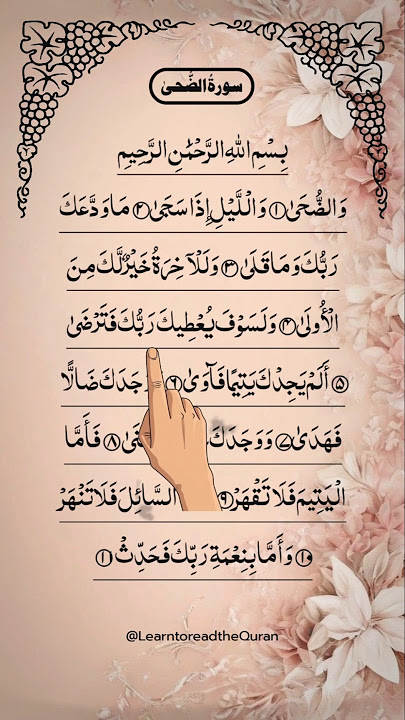 سورة الضحى
بِسْمِ اللهِ الرَّحْمٰنِ الرَّحِيمِ
وَالضُّحَىٰ ١ وَاللَّيْلِ إِذَا سَجَىٰ ٢ مَا وَدَّعَكَ
رَبُّكَ وَمَا قَلَىٰ ٣ وَلَلْآخِرَةُ خَيْرٌ لَّكَ مِنَ
الْأُولَىٰ ٤ وَلَسَوْفَ يُعْطِيكَ رَبُّكَ فَتَرْضَىٰ
٥ أَلَمْ يَجِدْكَ يَتِيمًا فَآوَىٰ ٦ جَدَكَ ضَالًّا
فَهَدَىٰ ٧ وَوَجَدَكَ نَىٰ ٨ فَأَمَّا
الْيَتِيمَ فَلَا تَقْهَرْ ٩ السَّائِلَ فَلَا تَنْهَرْ
١٠ وَأَمَّا بِنِعْمَةِ رَبِّكَ فَحَدِّثْ ١١
@LearntoreadtheQuran